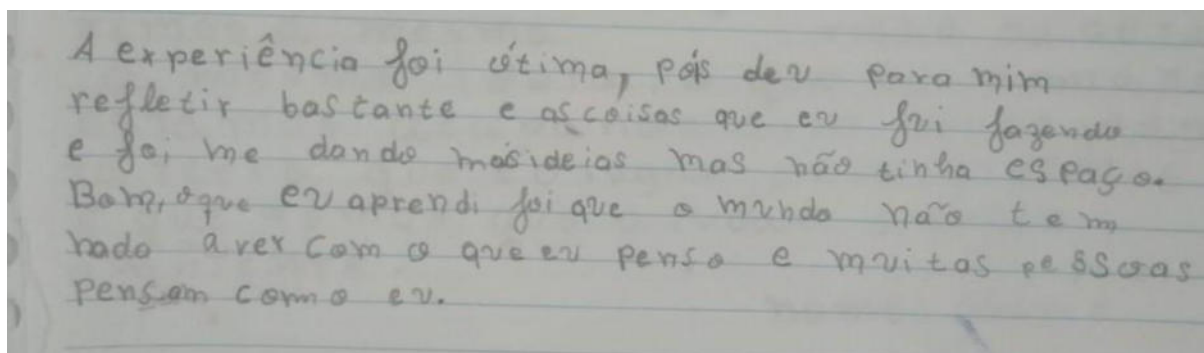 A experiência foi ótima, pois deu para mim
refletir bastante e as coisas que eu fui fazendo
e foi me dando mais ideias mas não tinha espaço.
Bom, o que eu aprendi foi que o mundo não tem
nada a ver com o que eu penso e muitas pessoas
pensam como eu.